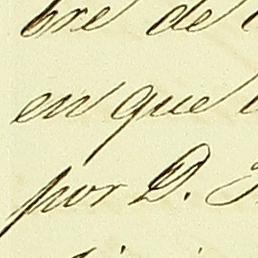 bre de
en que
por D.